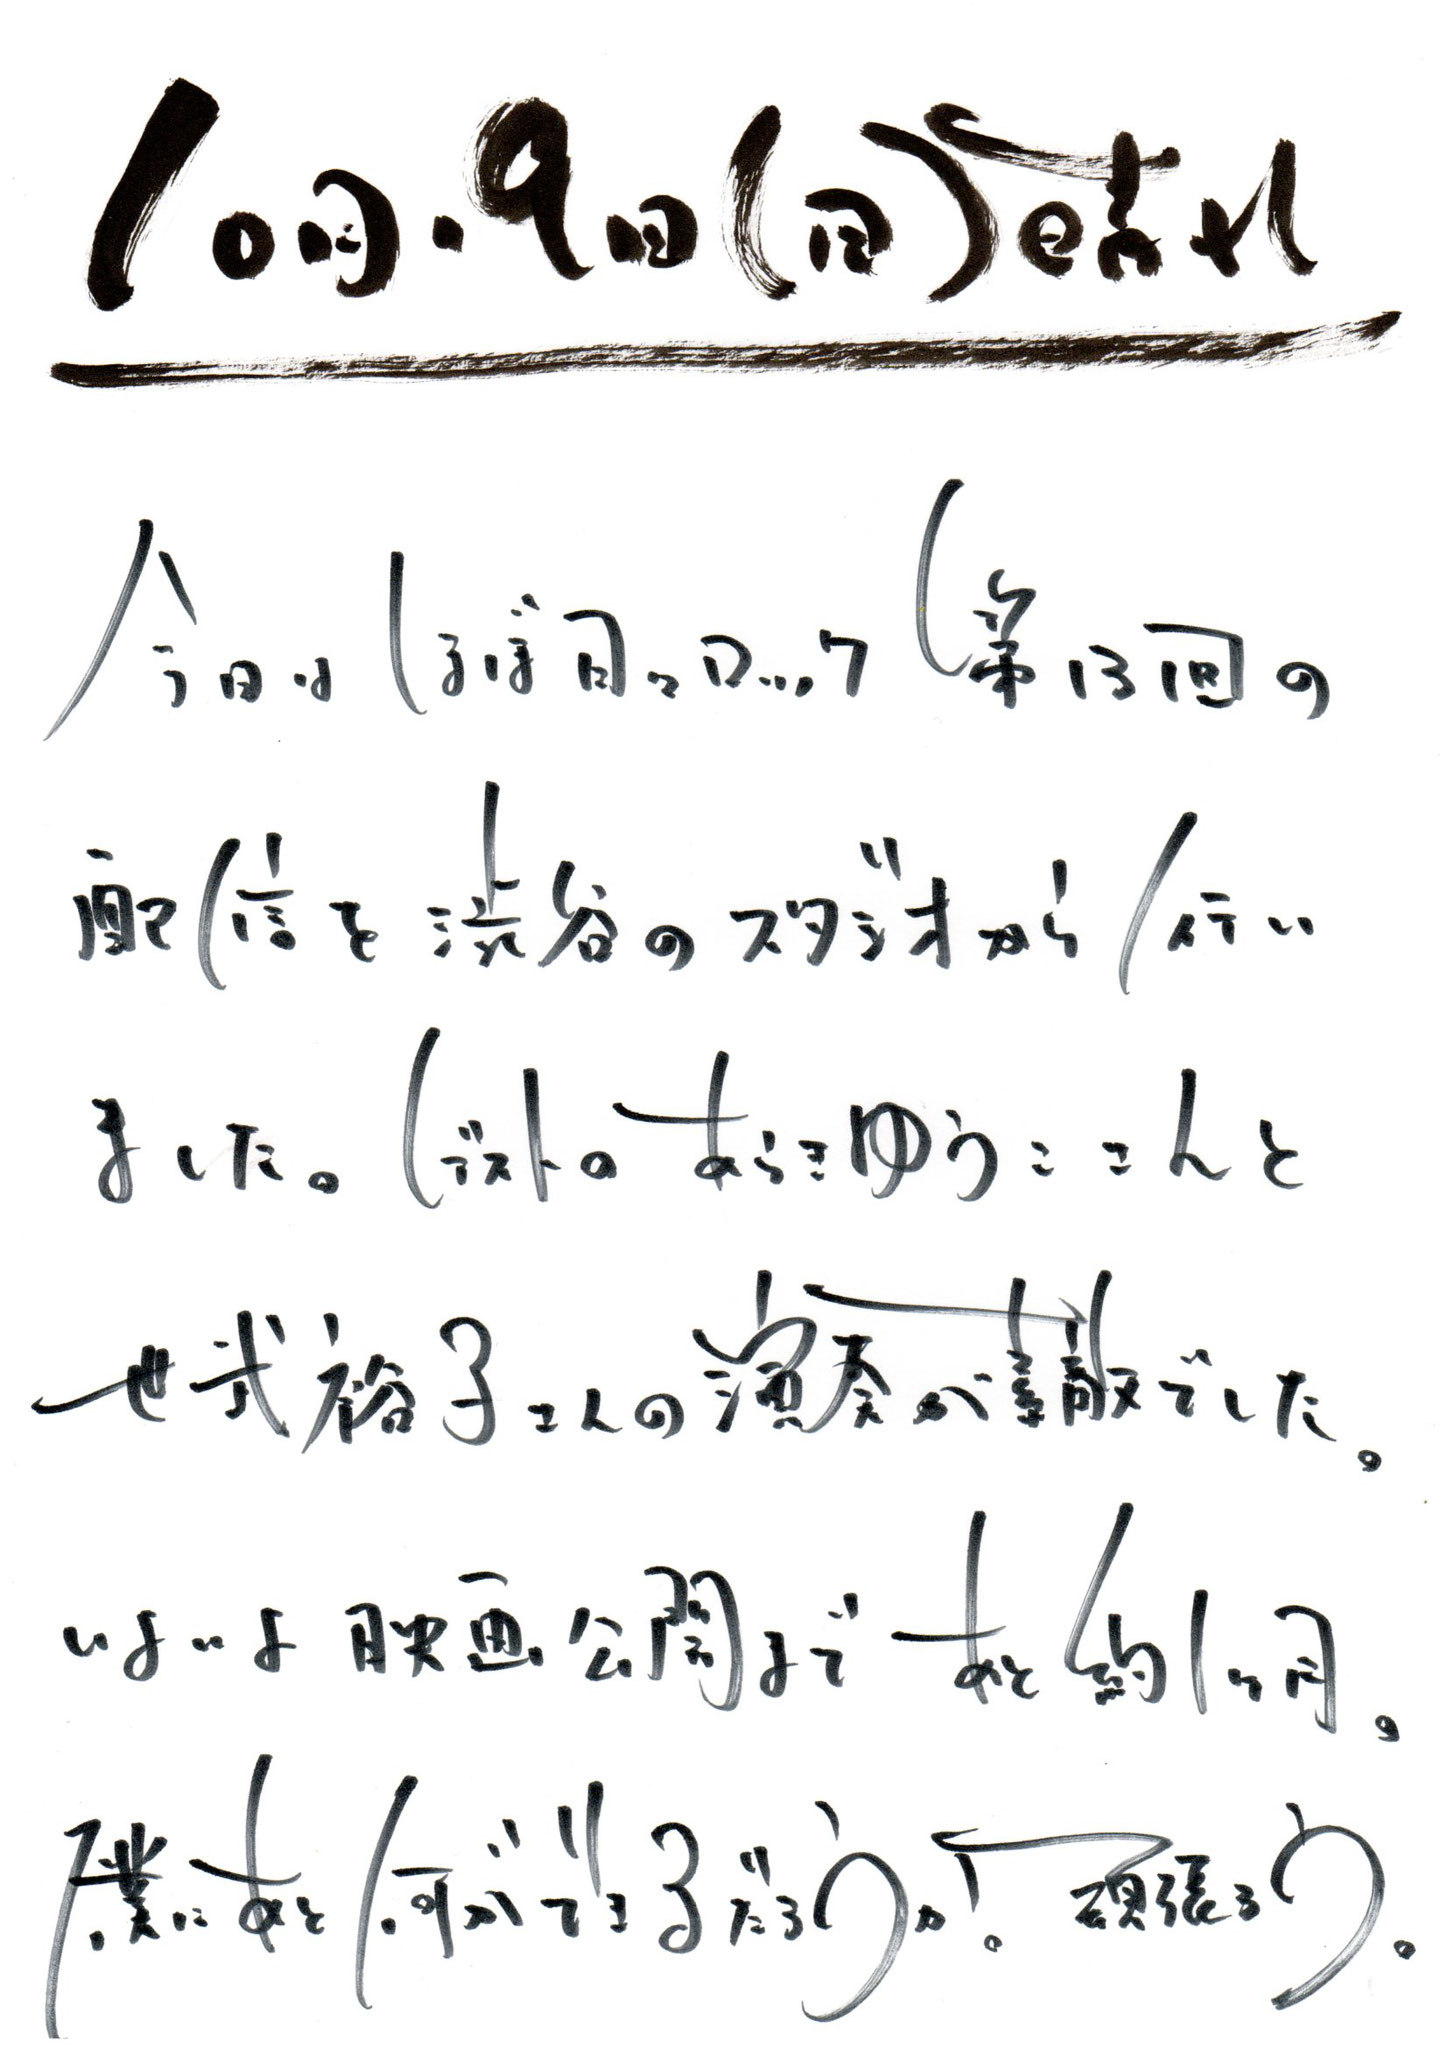 10月.9日(日)晴れ
今日はほぼ月 ロック 第13回の
配信を渋谷のスタジオから行い
ました。ゲストのあらきゆうこさんと
世武裕子さんの演奏が素敵でした。
いよいよ映画公開まであと約1ヶ月。
僕にあと何ができるだろうか。頑張ろう。